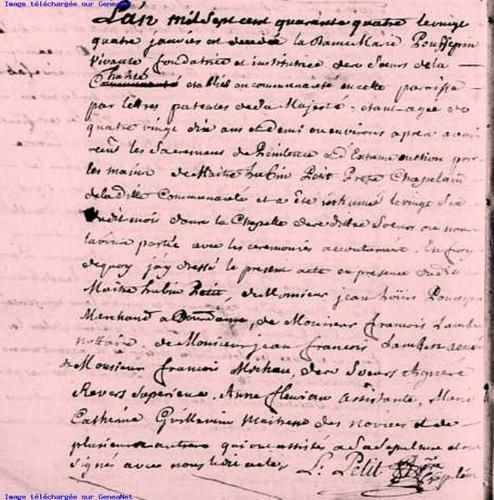 Image téléchargée sur GeneaNet
L'an mil sept cent quarante quatre le vingt
quatre janvier est decedée la Dame Marie Poussepin
vivante fondatrice et institutrice des Soeurs de la
charité
établies en communauté en cette paroisse
par lettres patentes de Sa Majesté, etant agée de
quatre vingt dix ans et demi ou environs apres avoir
receu les Sacremens de Penitence et d'Extreme onction par
les mains de Maitre hubin Petit Pretre Chapelain
de la ditte Communauté et a été inhumée le vingt
dudit mois dans la Chapelle des dittes Soeurs
partie avec les ceremonies accoutumées. En foy
de quoy j'ay dressé le present acte en presence dudit
Maitre hubin Petit, de Monsieur jean Poussepin
Marchand a Dourdan, de Monsieur françois Lambert
nottaire, de Monsieur jean françois Lambert
de Monsieur françois Michau, des Soeurs
Superieure, Anne fleuriau assistante, Marie
Catherine Guillemin Maitresse des novices et de
plusieurs autres qui ont assisté a la Sepulture et ont
signé avec nous
L. Petit
Chapelain
Image téléchargée sur GeneaNet